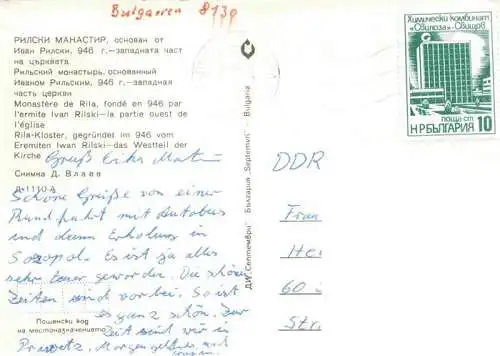 Bulgarien 8139
РИЛСКИ МАНАСТИР, основан от
Иван Рилски, 946 г.—западната част
на църквата
Рильский монастырь, основанный
Иваном Рильским, 946 г.—западная
часть церкви
Monastère de Rila, fondé en 946 par
l'ermite Ivan Rilski—la partie ouest de
l'église
Rila-Kloster, gegründet im 946 vom
Eremiten Ivan Rilski—das Westteil der
Kirche
Снимка Д. Влаев
А-1110-А
Schöne Grüße von einer
Rundfahrt mit Autobus
und dann Erholung in
Sozopol. Es ist ja alles
sehr teuer geworden. Die schönen
Zeiten sind vorbei. So ist
es ganz schön. Zur
Zeit sind wir in
Morgen geht es
Пощенски код
на местоназначението
ДИ „Септември" България „Septemvri" - Bulgaria
Химически комбинат
„Свилоза"-Свищов
поща·ст.
НР БЪЛГАРИЯ 10
DDR
Frau
He
60
Str